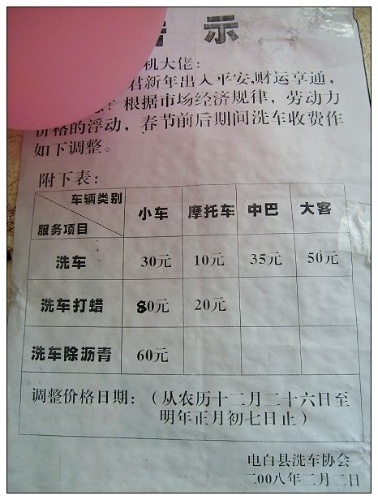 示
机大佬:
君新年出入平安,财运享通,
根据市场经济规律,劳动力
价格的浮动,春节前后期间洗车收费作
如下调整。
附下表:
车辆类别 小车 摩托车 中巴 大客
服务项目
洗车 30元 10元 35元 50元
洗车打蜡 80元 20元
洗车除沥青 60元
调整价格日期:(从农历十二月二十六日至
明年正月初七日止)
电白县洗车协会
二00八年二月二日